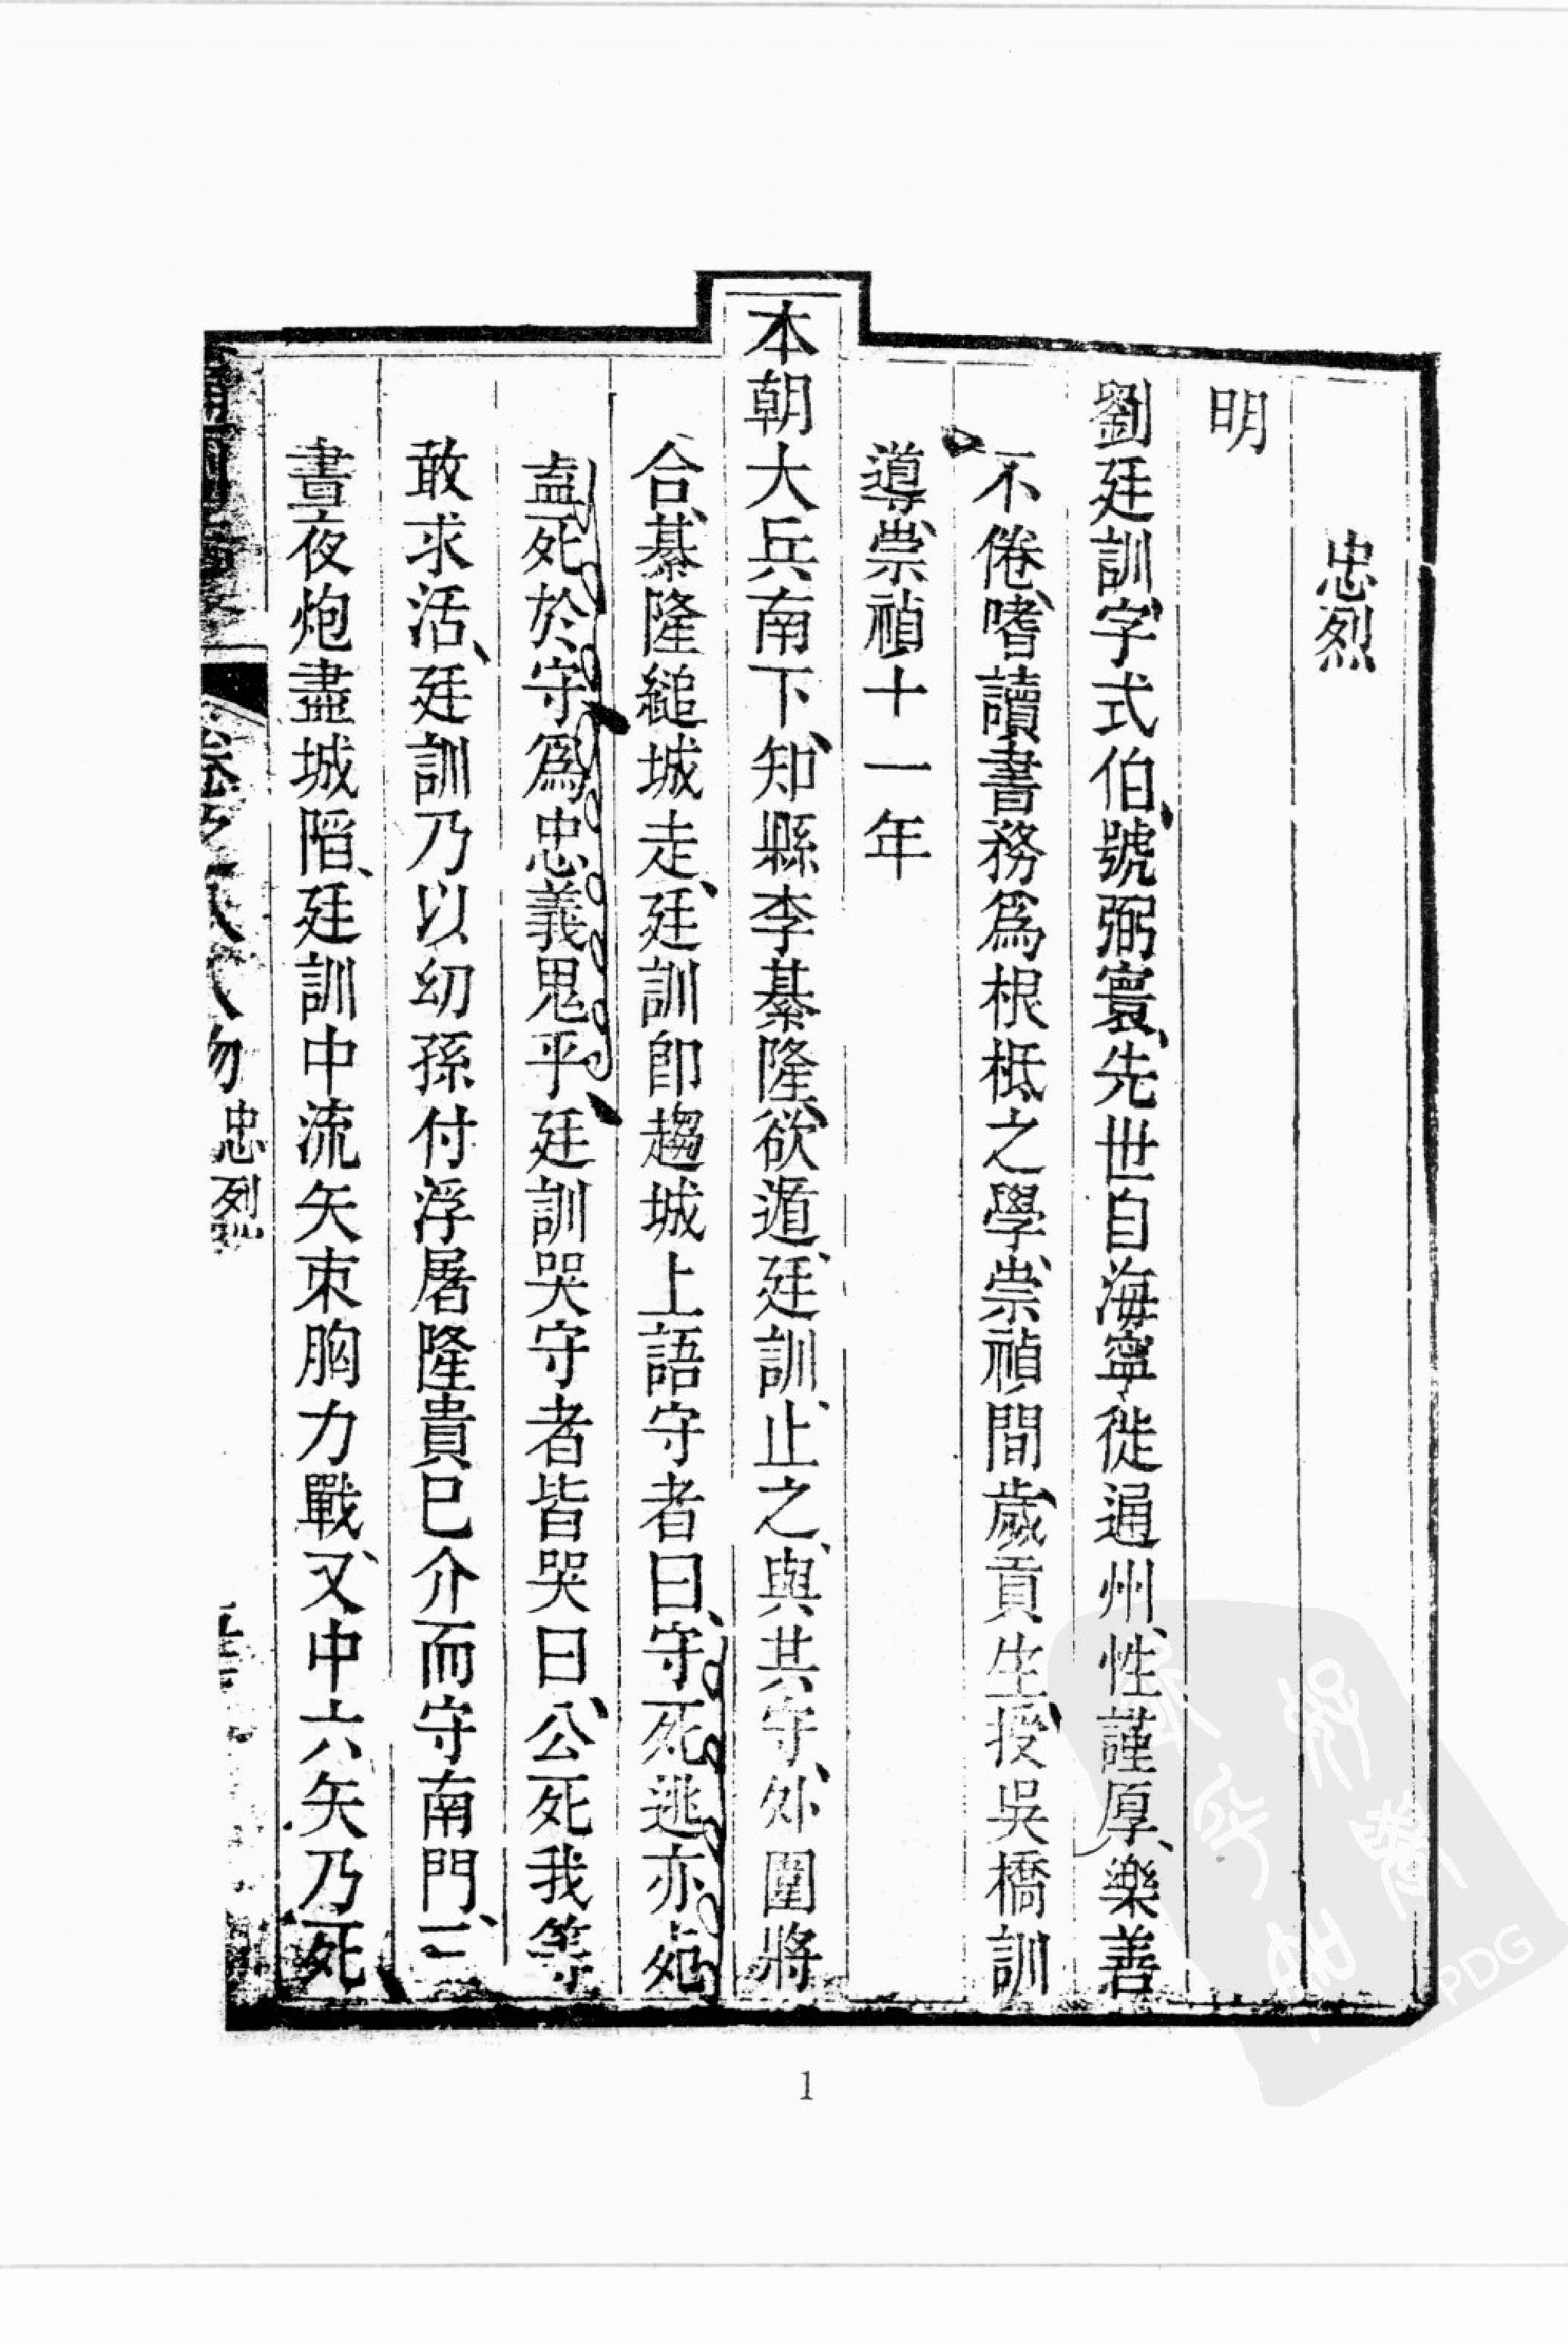 忠烈
明
劉廷訓字式伯號弼寰先世自海寧徙通州性謹厚樂善
不倦嗜讀書務爲根柢之學崇禎間歲貢生授吳橋訓
導崇禎十一年
本朝大兵南下知縣李綦隆欲遁廷訓止之與共守外圍將
合綦隆縋城走廷訓卽趨城上語守者曰守死逃亦死
盍死於守爲忠義鬼乎廷訓哭守者皆哭曰公死我等
敢求活廷訓乃以幼孫付浮屠隆貴已介而守南門三
晝夜炮盡城陷廷訓中流矢束胸力戰又中六矢乃死
通州志
卷之 人物忠烈
1
PDG